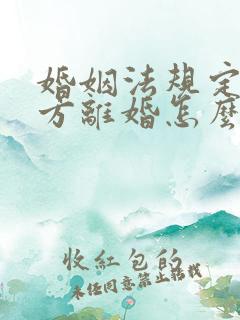 婚姻法规定
方離婚怎麽
收紅包的
未经同意禁止转载